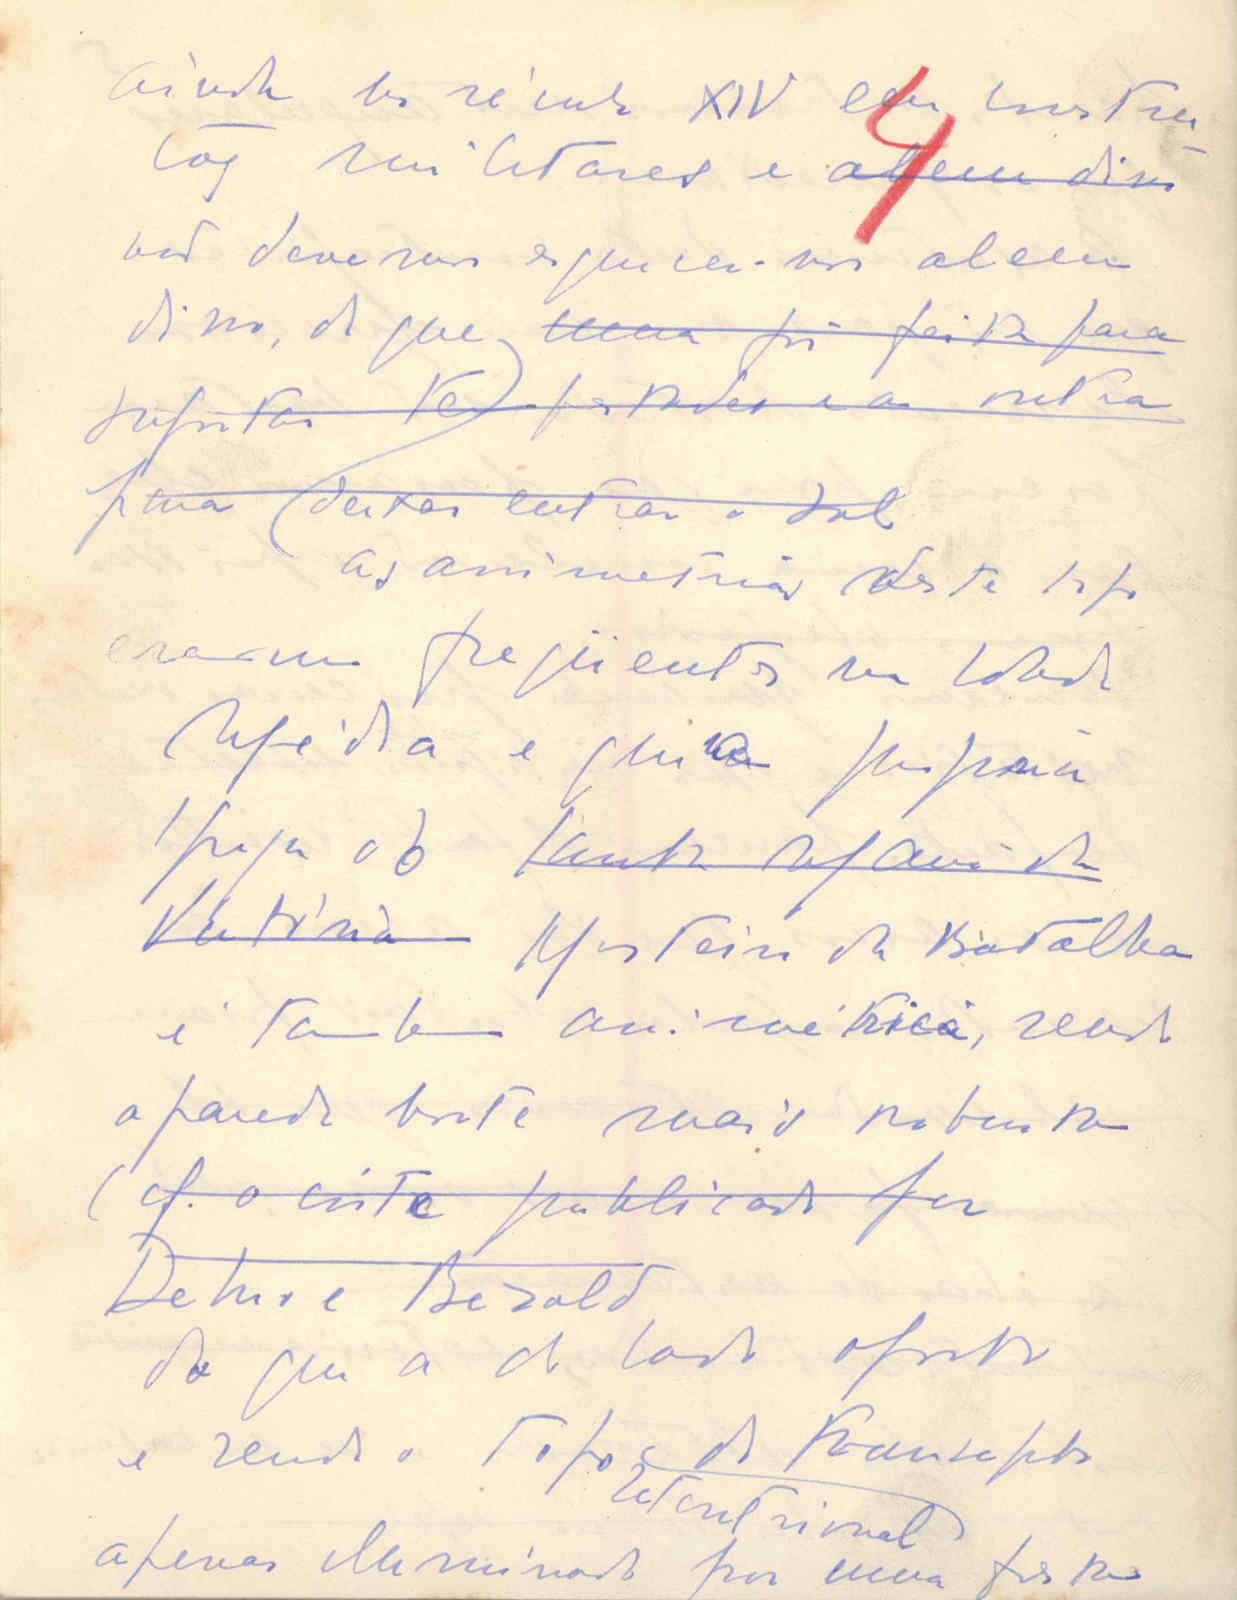 4
ainda no século XIV em constru-
ções militares e alem disso
não devemos esquecer-nos alem
disso, de que uma foi feita para
suportar tempestades e a outra
para deixar entrar o sol
as assimetrias deste tipo
eram freqüentes na Idade
Média e a própria
Igreja do Santa Maria da
Vitória Mosteiro da Batalha
é tambem assimétrica, sendo
a parede norte mais robusta
(cf. o corte publicado por
Dehio e Bezold
do que a do lado oposto
e sendo o topo do transepto
setentrional
apenas iluminado por uma fresta